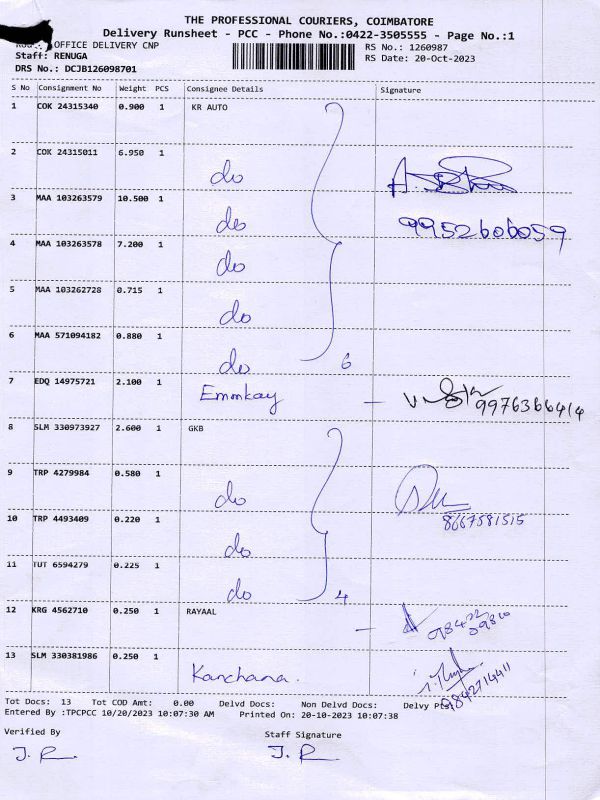 THE PROFESSIONAL COURIERS, COIMBATORE
Delivery Runsheet - PCC - Phone No.:0422-3505555 - Page No.:1
OFFICE DELIVERY CNP RS No.: 1260987
Staff: RENUGA RS Date: 20-Oct-2023
DRS No.: DCJB126098701
S No Consignment No Weight PCS Consignee Details Signature
1 COK 24315340 0.900 1 KR AUTO
2 COK 24315011 6.950 1 do
3 MAA 103263579 10.500 1 do 9952606059
4 MAA 103263578 7.200 1 do
5 MAA 103262728 0.715 1 do
6 MAA 571094182 0.880 1 do 6
7 EDQ 14975721 2.100 1 Emmkay - 9976366414
8 SLM 330973927 2.600 1 GKB
9 TRP 4279984 0.580 1 do
10 TRP 4493409 0.220 1 do 8667581515
11 TUT 6594279 0.225 1 do 4
12 KRG 4562710 0.250 1 RAYAAL -
13 SLM 330381986 0.250 1 Kanchana. 9842714411
Tot Docs: 13 Tot COD Amt: 0.00 Delvd Docs: Non Delvd Docs: Delvy
Entered By :TPCPCC 10/20/2023 10:07:30 AM Printed On: 20-10-2023 10:07:38
Verified By Staff Signature
J. R J. R